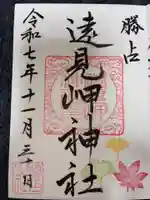 勝占
遠見岬神社
令和七年十一月三十日